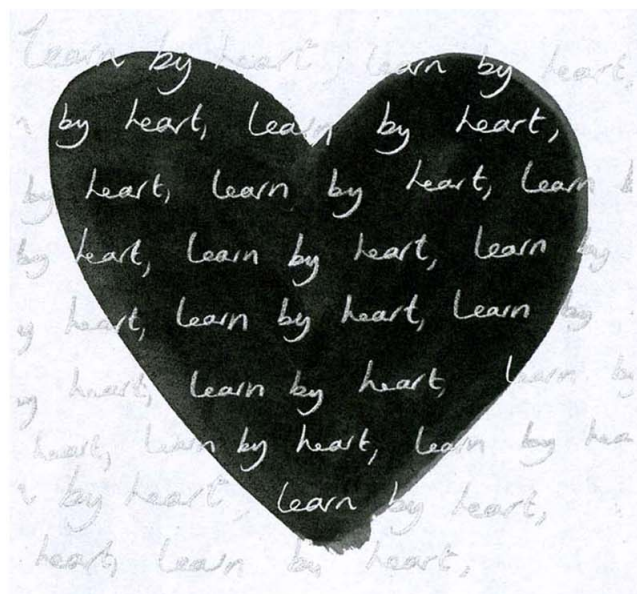 Learn by heart, learn by heart,
by heart, learn by heart,
by heart, learn by heart, learn b
by heart, learn by heart, learn by
y heart, learn by heart, learn by
by heart, learn by heart, learn by
heart, learn by heart, learn by hea
by heart, learn by heart,
heart, learn by heart,